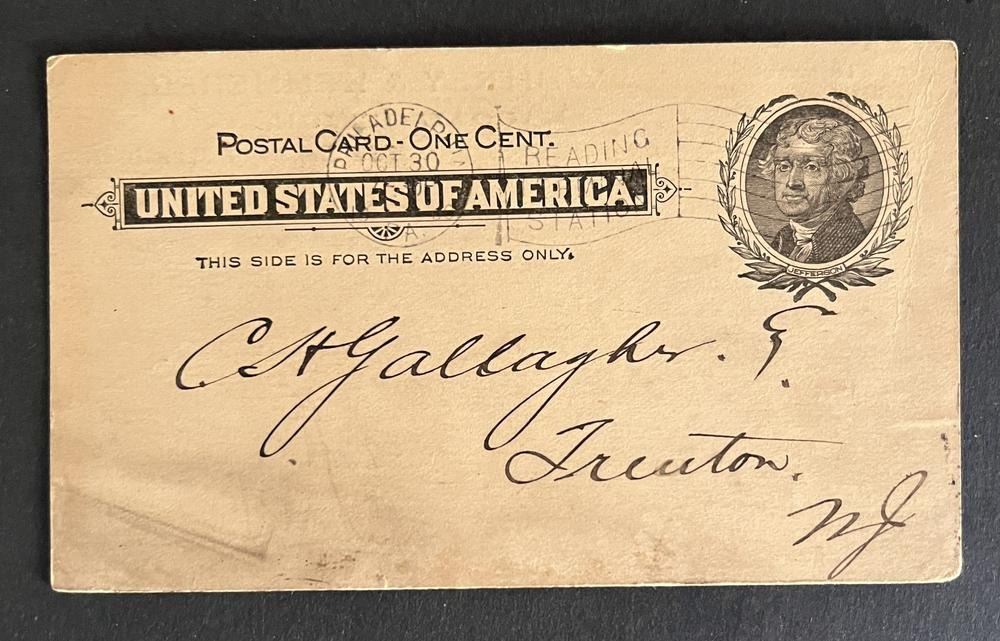 POSTAL CARD - ONE CENT.
PHILADELPHIA
OCT 30
A.
READING
STATION
UNITED STATES OF AMERICA.
JEFFERSON
THIS SIDE IS FOR THE ADDRESS ONLY.
C H Gallagher.
Trenton.
NJ